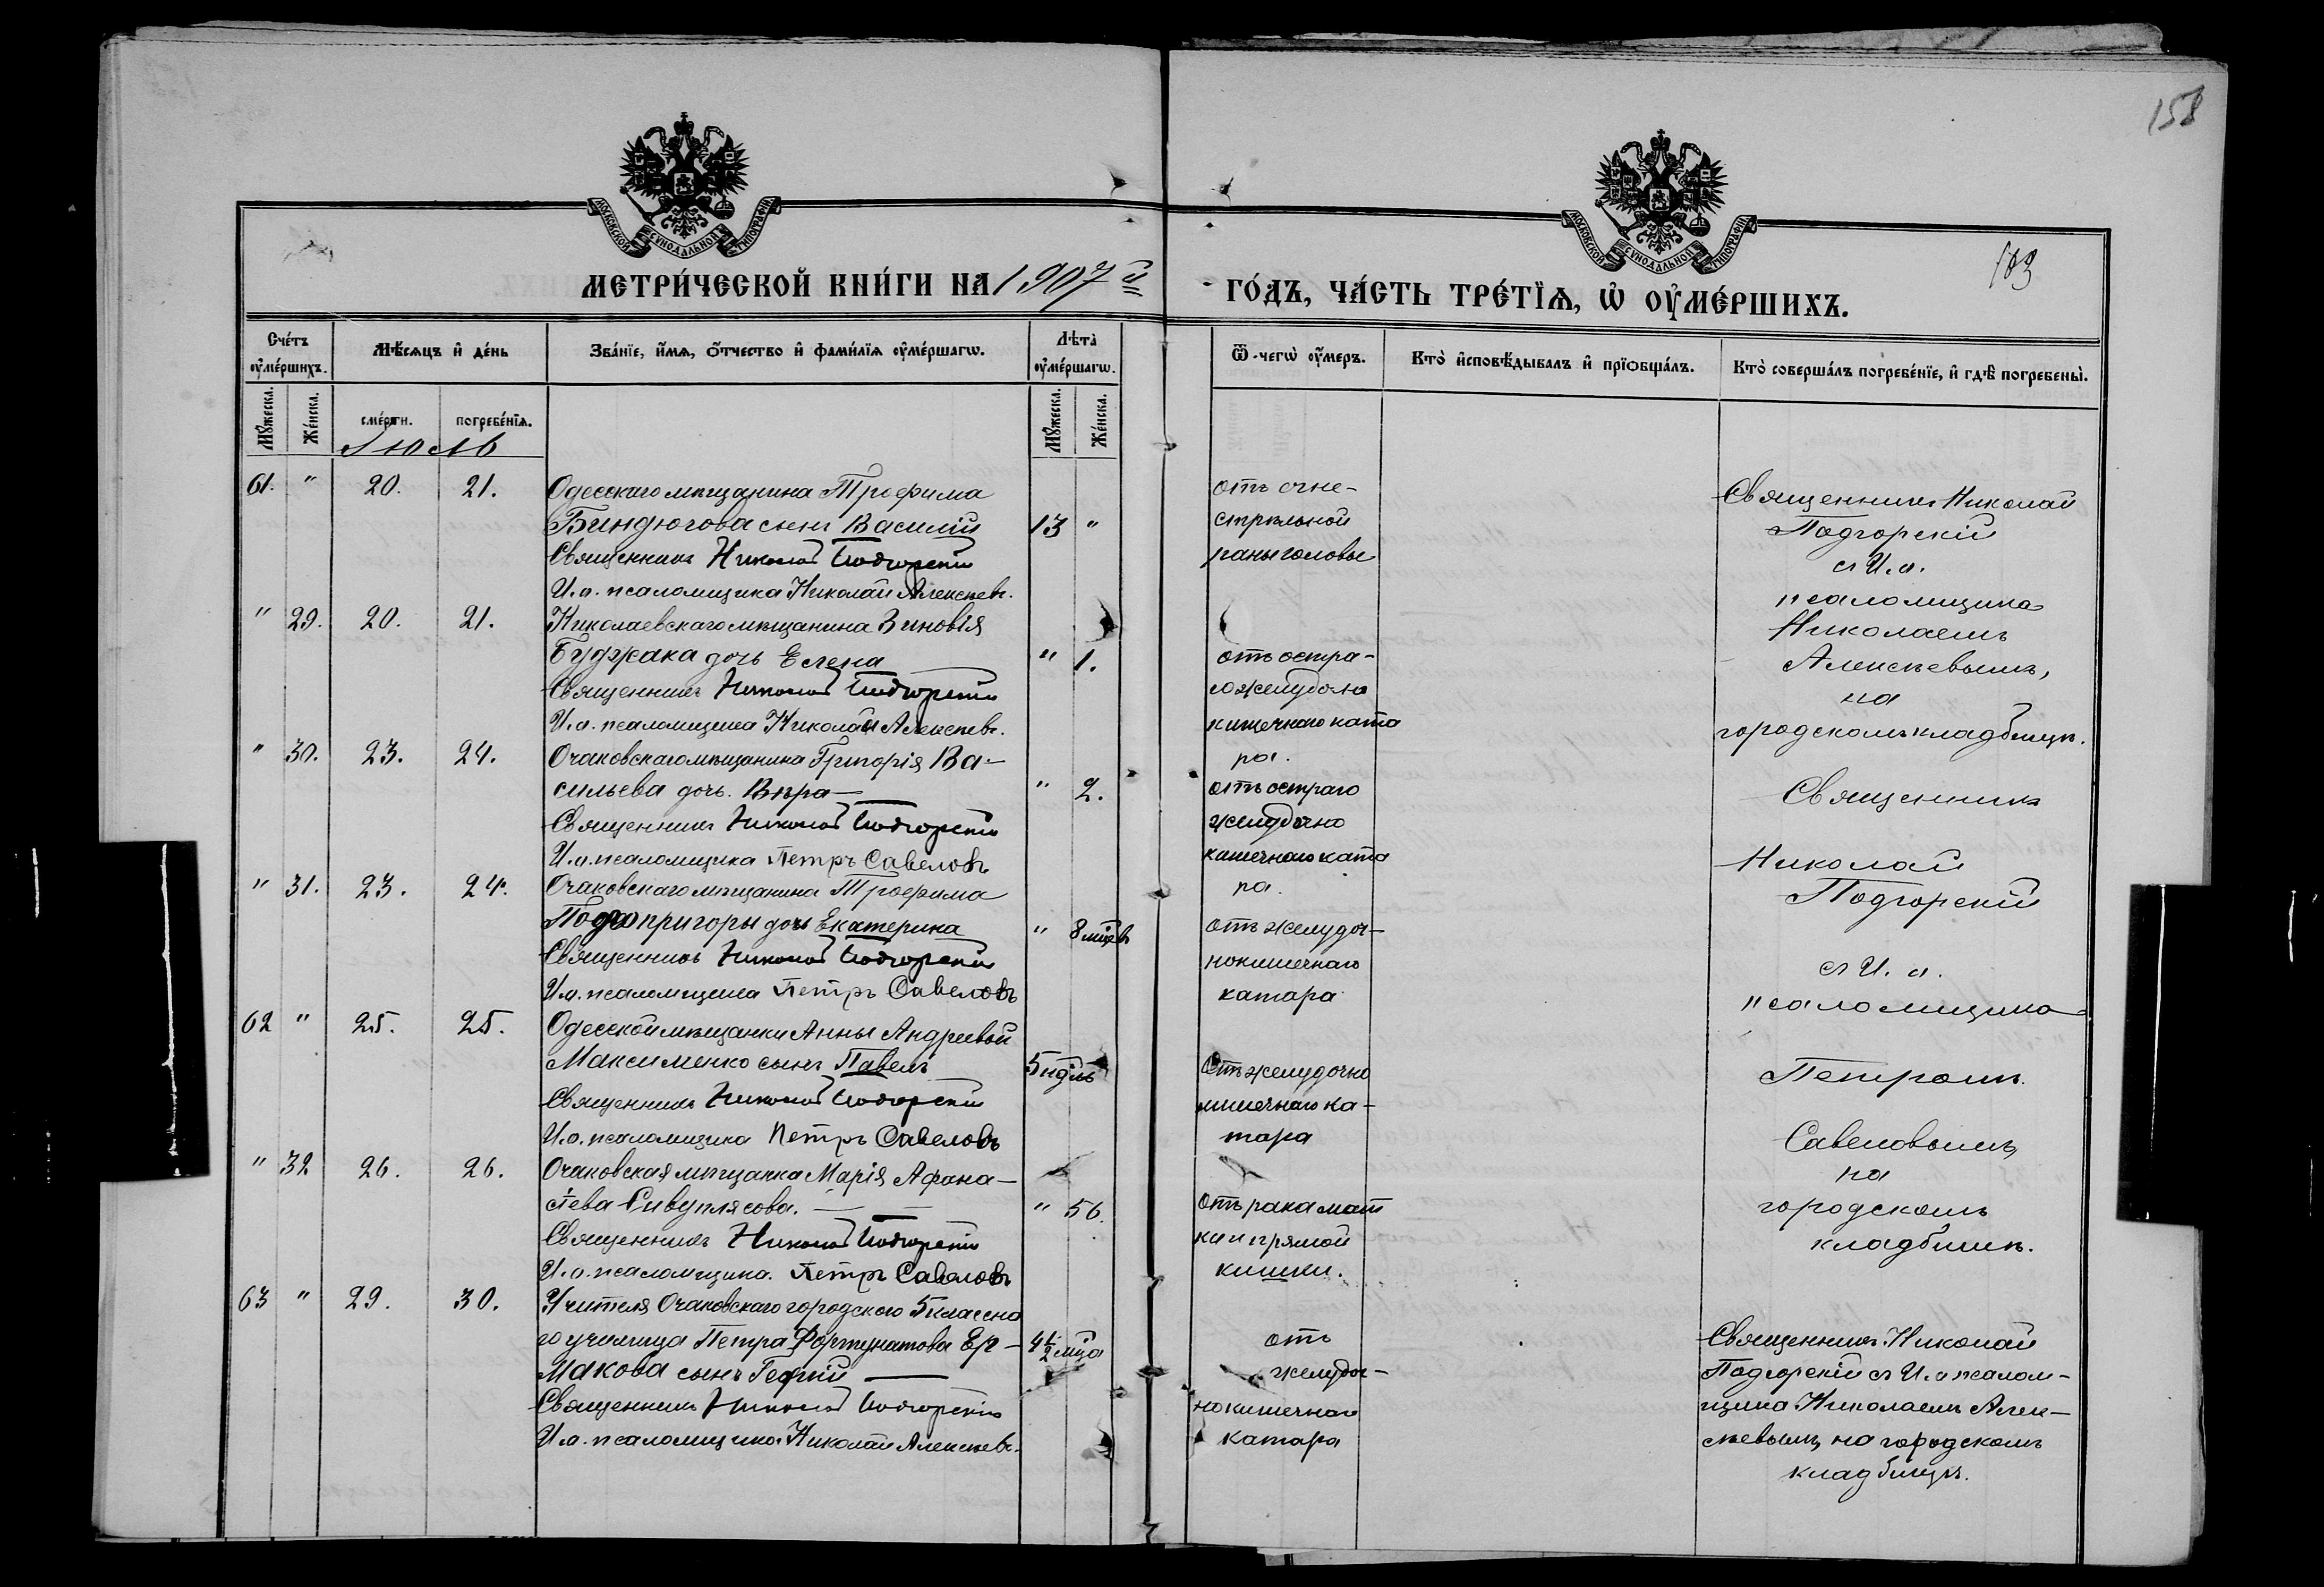 158
МОСКОВСКОЙ СѴНОДАЛЬНОЙ ТИПОГРАФІИ
МОСКОВСКОЙ СѴНОДАЛЬНОЙ ТИПОГРАФІИ
183
МЕТРИ́ЧЕСКОЙ КНИ́ГИ НА 1907й
ГО́ДЪ, ЧА́СТЬ ТРЕ́ТЇѦ, Ѡ҆ ОУ҆МЕ́РШИХЪ.
Сче́тъ оу҆ме́ршихъ.
Мѣ́сѧцъ и҆ де́нь
Зва́нїе, и҆́мѧ, ѻ҆́тчество и҆ фами́лїѧ оу҆ме́ршагѡ.
Лѣта̀ оу҆ме́ршагѡ.
Ѿ чегѡ̀ оу҆́меръ.
Кто̀ и҆сповѣ́дывалъ и҆ прїѡбща́лъ.
Кто̀ соверша́лъ погребе́нїе, и҆ гдѣ̀ погребены̀.
Мꙋ́жеска.
Же́нска.
сме́рти.
погребе́нїѧ.
Мꙋ́жеска.
Же́нска.
Іюль
61. " 20. 21.
Одесскаго мѣщанина Трофима
Биндюгова сынъ Василій
13 "
Священникъ Николай Подгорскій
И.о. псаломщика Николай Алексѣевъ.
отъ огне-
стрѣльной
раны головы
Священникъ Николай
Подгорскій
съ И.о.
псаломщика
Николаемъ
Алексѣевымъ,
на
городскомъ кладбищѣ.
" 29. 20. 21.
Николаевскаго мѣщанина Зиновія
Буджака дочь Елена
" 1.
Священникъ Николай Подгорскій
И.о. псаломщика Николай Алексѣевъ.
отъ остра-
го желудочно
кишечнаго ката
ра.
" 30. 23. 24.
Очаковскаго мѣщанина Григорія Ва-
сильева дочь Вѣра
" 2.
Священникъ Николай Подгорскій
И.о. псаломщика Петръ Савеловъ
отъ остраго
желудочно
кишечнаго ката
ра.
Священникъ
Николай
Подгорскій
съ И.о.
псаломщика
Петромъ
Савеловымъ,
на
городскомъ
кладбищѣ.
" 31. 23. 24.
Очаковскаго мѣщанина Трофима
Подопригоры дочь Екатерина
" 8 мцевъ
Священникъ Николай Подгорскій
И.о. псаломщика Петръ Савеловъ
отъ желудоч-
нокишечнаго
катара
62 " 25. 25.
Одесской мѣщанки Анны Андреевой
Максименко сынъ Павелъ
5 ндль
Священникъ Николай Подгорскій
И.о. псаломщика Петръ Савеловъ
Отъ желудочно
кишечнаго ка-
тара
" 32 26. 26.
Очаковская мѣщанка Марія Афана-
сіева Сивуплясова.
" 56.
Священникъ Николай Подгорскій
И.о. псаломщика Петръ Савеловъ
отъ рака мат
ки и прямой
кишки.
63 " 29. 30.
Учителя Очаковскаго городского 5 классна
го училища Петра Фортунатова Ер-
макова сынъ Георгій
4 1/2 мца
Священникъ Николай Подгорскій
И.о. псаломщика Николай Алексѣевъ.
отъ
желудоч-
нокишечнаго
катара
Священникъ Николай
Подгорскій съ И.о псалом-
щика Николаемъ Алек-
сѣевымъ, на городскомъ
кладбищѣ.